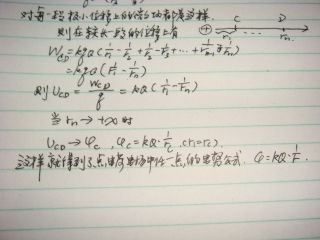 对每一段极小位移上的微功都是这样.
则在较长一段的位移上有
C D
r₁ rₙ
W_CD = kqQ(1/r₁ - 1/r₂ + 1/r₂ - 1/r₃ + … + 1/rₙ₋₁ - 1/rₙ)
= kqQ(1/r₁ - 1/rₙ)
则 U_CD = W_CD/q = kQ(1/r₁ - 1/rₙ)
当 rₙ → +∞ 时
U_CD → φ_C , φ_C = kQ·1/r_C (r_C = r₁)
这样就得到了点电荷电场中任一点的电势公式. φ = kQ·1/r.